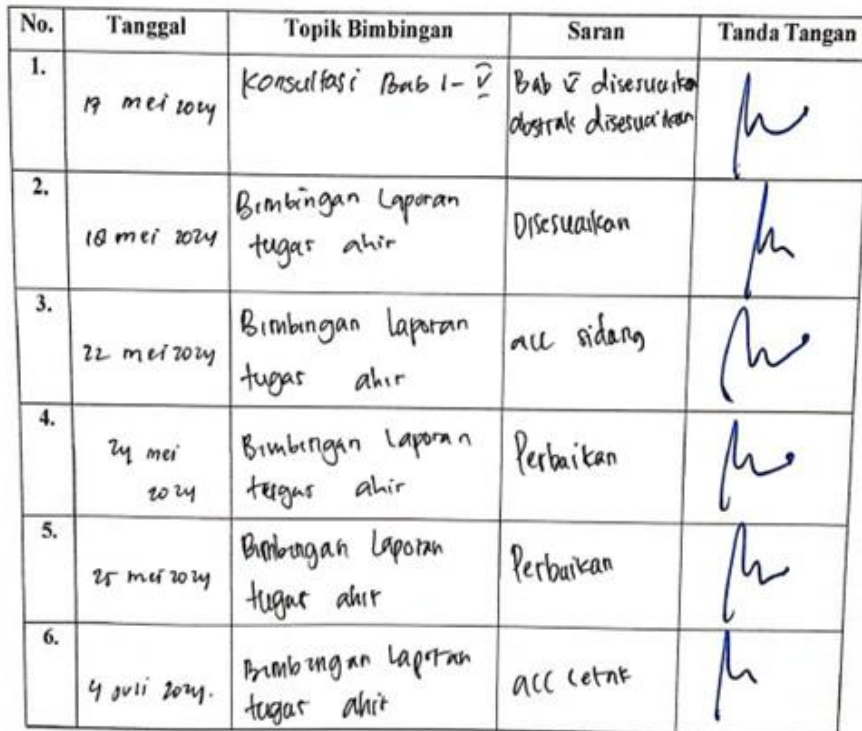 No. Tanggal Topik Bimbingan Saran Tanda Tangan
1.
17 mei 2024
Konsultasi Bab 1 - V
Bab V disesuaikan
abstrak disesuaikan
2.
18 mei 2024
Bimbingan Laporan
tugas ahir
Disesuaikan
3.
22 mei 2024
Bimbingan laporan
tugas ahir
acc sidang
4.
24 mei
2024
Bimbingan Laporan
tugas ahir
Perbaikan
5.
25 mei 2024
Bimbingan Laporan
tugas ahir
Perbaikan
6.
4 juli 2024.
Bimbingan Laporan
tugas ahir
acc cetak